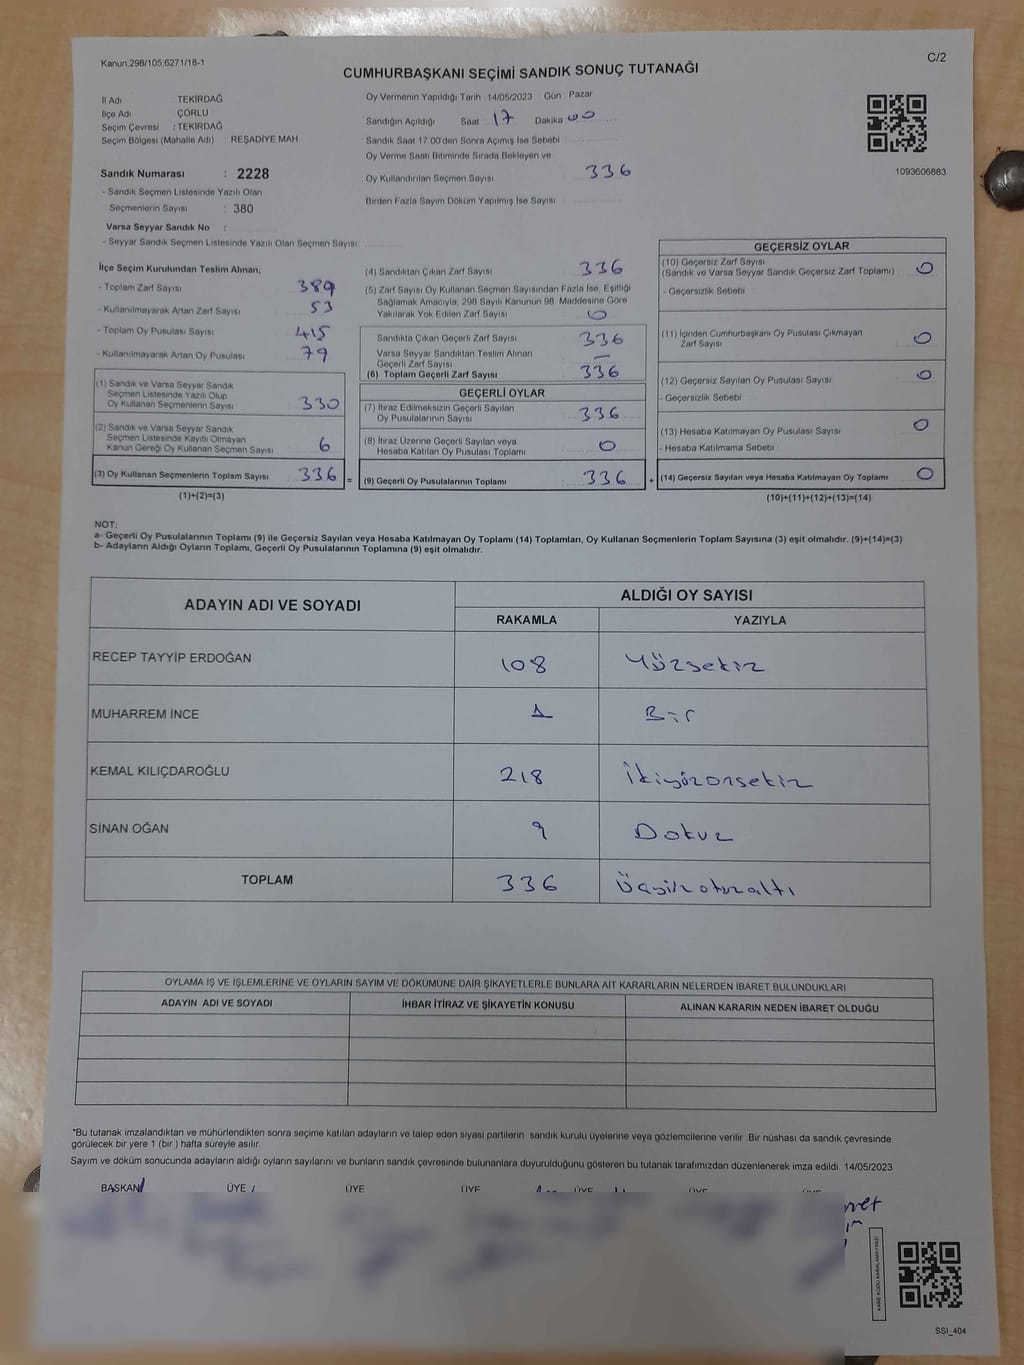 Kanun,298/105,6271/18-1
C/2
CUMHURBAŞKANI SEÇİMİ SANDIK SONUÇ TUTANAĞI
İl Adı : TEKİRDAĞ
İlçe Adı : ÇORLU
Seçim Çevresi : TEKİRDAĞ
Seçim Bölgesi (Mahalle Adı) : REŞADİYE MAH
Sandık Numarası : 2228
- Sandık Seçmen Listesinde Yazılı Olan
Seçmenlerin Sayısı : 380
Varsa Seyyar Sandık No :
- Seyyar Sandık Seçmen Listesinde Yazılı Olan Seçmen Sayısı
Oy Vermenin Yapıldığı Tarih 14/05/2023 Gün : Pazar
Sandığın Açıldığı Saat : 17 Dakika 00
Sandık Saat 17:00'den Sonra Açımış İse Sebebi :
Oy Verme Saati Bitiminde Sırada Bekleyen ve
Oy Kullandırılan Seçmen Sayısı 336
Birden Fazla Sayım Döküm Yapılmış İse Sayısı
1093606883
İlçe Seçim Kurulundan Teslim Alınan;
- Toplam Zarf Sayısı 389
- Kullanılmayarak Artan Zarf Sayısı 53
- Toplam Oy Pusulası Sayısı 415
- Kullanılmayarak Artan Oy Pusulası 79
(1) Sandık ve Varsa Seyyar Sandık
Seçmen Listesinde Yazılı Olup
Oy Kullanan Seçmenlerin Sayısı 330
(2) Sandık ve Varsa Seyyar Sandık
Seçmen Listesinde Kayıtlı Olmayan
Kanun Gereği Oy Kullanan Seçmen Sayısı 6
(3) Oy Kullanan Seçmenlerin Toplam Sayısı 336 =
(1)+(2)=(3)
(4) Sandıktan Çıkan Zarf Sayısı 336
(5) Zarf Sayısı Oy Kullanan Seçmen Sayısından Fazla İse, Eşitliği
Sağlamak Amacıyla; 298 Sayılı Kanunun 98. Maddesine Göre
Yakılarak Yok Edilen Zarf Sayısı 0
Sandıkta Çıkan Geçerli Zarf Sayısı 336
Varsa Seyyar Sandıktan Teslim Alınan
Geçerli Zarf Sayısı —
(6) Toplam Geçerli Zarf Sayısı 336
GEÇERLİ OYLAR
(7) İtiraz Edilmeksizin Geçerli Sayılan
Oy Pusulalarının Sayısı 336
(8) İtiraz Üzerine Geçerli Sayılan veya
Hesaba Katılan Oy Pusulası Toplamı 0
(9) Geçerli Oy Pusulalarının Toplamı 336 +
GEÇERSİZ OYLAR
(10) Geçersiz Zarf Sayısı
(Sandık ve Varsa Seyyar Sandık Geçersiz Zarf Toplamı) 0
- Geçersizlik Sebebi :
(11) İçinden Cumhurbaşkanı Oy Pusulası Çıkmayan
Zarf Sayısı 0
(12) Geçersiz Sayılan Oy Pusulası Sayısı 0
- Geçersizlik Sebebi :
(13) Hesaba Katılmayan Oy Pusulası Sayısı 0
- Hesaba Katılmama Sebebi :
(14) Geçersiz Sayılan veya Hesaba Katılmayan Oy Toplamı 0
(10)+(11)+(12)+(13)=(14)
NOT:
a- Geçerli Oy Pusulalarının Toplamı (9) ile Geçersiz Sayılan veya Hesaba Katılmayan Oy Toplamı (14) Toplamları, Oy Kullanan Seçmenlerin Toplam Sayısına (3) eşit olmalıdır. (9)+(14)=(3)
b- Adayların Aldığı Oyların Toplamı, Geçerli Oy Pusulalarının Toplamına (9) eşit olmalıdır.
ADAYIN ADI VE SOYADI
ALDIĞI OY SAYISI
RAKAMLA YAZIYLA
RECEP TAYYİP ERDOĞAN 108 Yüzsekiz
MUHARREM İNCE 1 Bir
KEMAL KILIÇDAROĞLU 218 İkiyüzonsekiz
SİNAN OĞAN 9 Dokuz
TOPLAM 336 Üçyüzotuzaltı
OYLAMA İŞ VE İŞLEMLERİNE VE OYLARIN SAYIM VE DÖKÜMÜNE DAİR ŞİKAYETLERLE BUNLARA AİT KARARLARIN NELERDEN İBARET BULUNDUKLARI
ADAYIN ADI VE SOYADI İHBAR İTİRAZ VE ŞİKAYETİN KONUSU ALINAN KARARIN NEDEN İBARET OLDUĞU
*Bu tutanak imzalandıktan ve mühürlendikten sonra seçime katılan adayların ve talep eden siyasi partilerin sandık kurulu üyelerine veya gözlemcilerine verilir. Bir nüshası da sandık çevresinde
görülecek bir yere 1 (bir ) hafta süreyle asılır.
Sayım ve döküm sonucunda adayların aldığı oyların sayılarını ve bunların sandık çevresinde bulunanlara duyurulduğunu gösteren bu tutanak tarafımızdan düzenlenerek imza edildi. 14/05/2023
BAŞKAN ÜYE ÜYE ÜYE ÜYE ÜYE ÜYE
SSİ_404